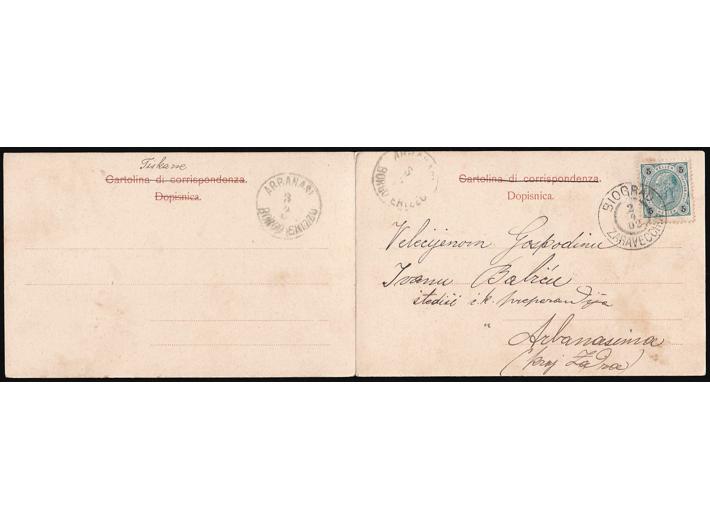 Tiskane
Cartolina di corrispondenza.
Dopisnica.
ARBANASI
3
2
BORGO ERIZZO
ARBANASI
BORGO ERIZZO
Cartolina di corrispondenza.
Dopisnica.
5 5
5 5
BIOGRAD
2
2
02
ZARAVECCHIA
Velecijenom Gospodinu
Ivanu
i.k. preparandija
"
Arbanasima
(kraj Zadra)